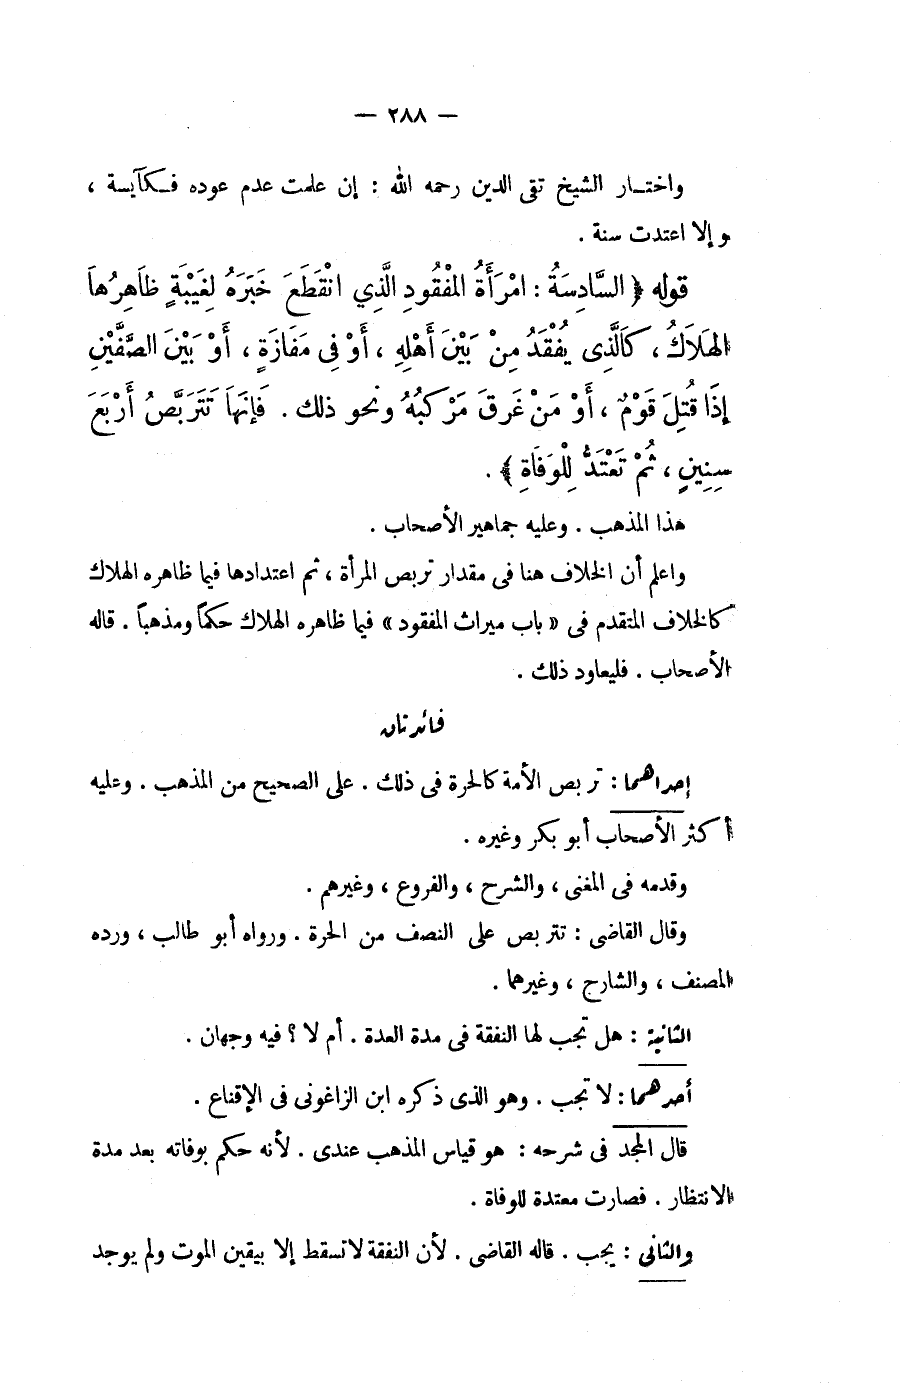 — ٢٨٨ —
واختار الشيخ تقى الدين رحمه الله : إن علمت عدم عوده فكآيسة ،
و إلا اعتدت سنة .
قوله ﴿ السَّادِسَةُ : امْرَأَةُ المْفْقُودِ الَّذِي انْقَطَعَ خَبَرَهُ لِغَيْبَةٍ ظاَهِرُهاَ
الهَلَاَكُ ، كَالَّذِى يُفْقَدُ مِنْ بَيْنِ أَهْلِهِ ، أَوْ فِى مَفَازَةٍ ، أَوْ بَيْنَ الصَّفَّيْنِ
إِذَا قُتِلَ قَوْمٌ ، أَوْ مَنْ غَرِقَ مَرْكَبُهُ ونحو ذلك . فَإِنَهاَ تَتَرَبَّصُ أَرْبَعَ
سِنِينٍ ، ثُمْ تَعْتَدُّ لِلْوَفَاةِ ﴾ .
هذا المذهب . وعليه جماهير الأصحاب .
واعلم أن الخلاف هنا فى مقدار تربص المرأة ، ثم اعتدادها فيما ظاهره الهلاك
كالخلاف المتقدم فى « باب ميراث المفقود » فيما ظاهره الهلاك حكماً ومذهباً . قاله
الأصحاب . فليعاود ذلك .
فائدتان
إحداهما : تربص الأمة كالحرة فى ذلك . على الصحيح من المذهب . وعليه
أكثر الأصحاب أبو بكر وغيره .
وقدمه فى المغنى ، والشرح ، والفروع ، وغيرهم .
وقال القاضى : تتربص على النصف من الحرة . ورواه أبو طالب ، ورده
المصنف ، والشارح ، وغيرهما .
الثانية : هل تجب لها النفقة فى مدة العدة . أم لا ؟ فيه وجهان .
أحدهما : لا تجب . وهو الذى ذكره ابن الزاغونى فى الإقناع .
قال المجد فى شرحه : هو قياس المذهب عندى . لأنه حكم بوفاته بعد مدة
الانتظار . فصارت معتدة للوفاة .
والثانى : يجب . قاله القاضى . لأن النفقة لاتسقط إلا بيقين الموت ولم يوجد